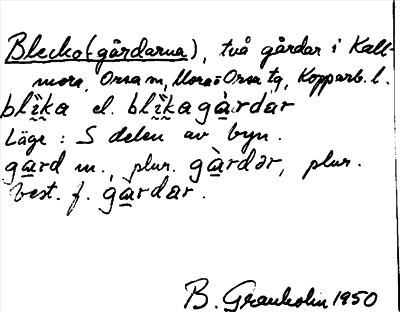 Blecko(-gårdarna), två gårdar i Kall-
mora, Orsa sn, Mora o Orsa tg, Kopparb. l.
blìka el. blìkagàrdar
Läge: S delen av byn.
gard m., plur. gàrdər, plur.
best. f. gardar.
B. Granholm 1950